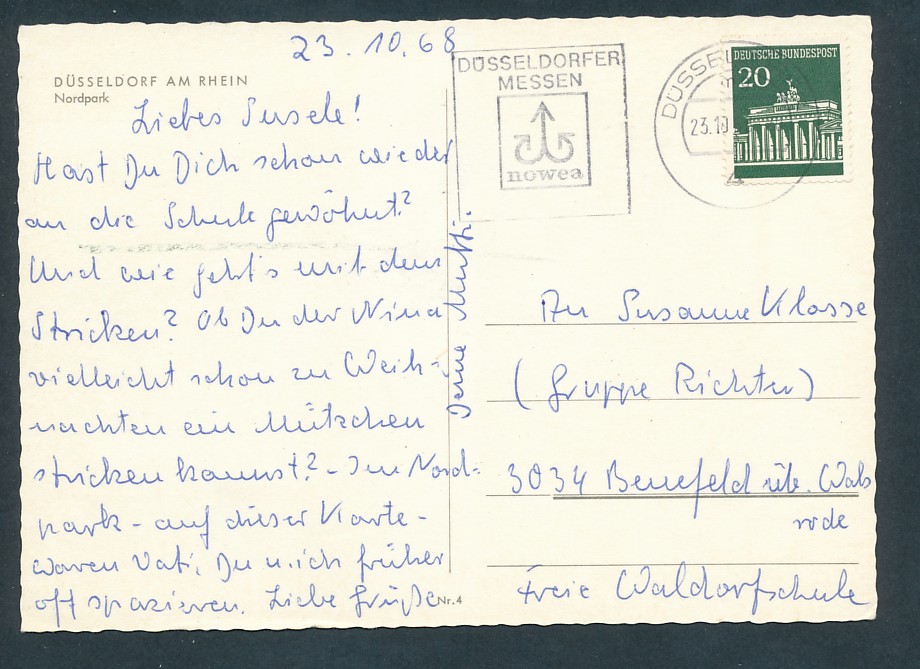 23.10.68
DÜSSELDORF AM RHEIN
Nordpark
Liebes Susele!
Hast Du Dich schon wieder
an die Schule gewöhnt?
Und wie geht's mit dem
Stricken? Ob Du der Nina
vielleicht schon zu Weih-
nachten ein Mützchen
stricken kannst? - Im Nord-
park - auf dieser Karte -
waren Vati, Du u. ich früher
oft spazieren. Liebe Grüße
Deine Mutti.
Nr. 4
DÜSSELDORFER
MESSEN
nowea
DÜSSEL
23.10
DEUTSCHE BUNDESPOST
20
An Susanne Klasse
(Gruppe Richter)
3034 Benefeld üb. Wals
rode
Freie Waldorfschule